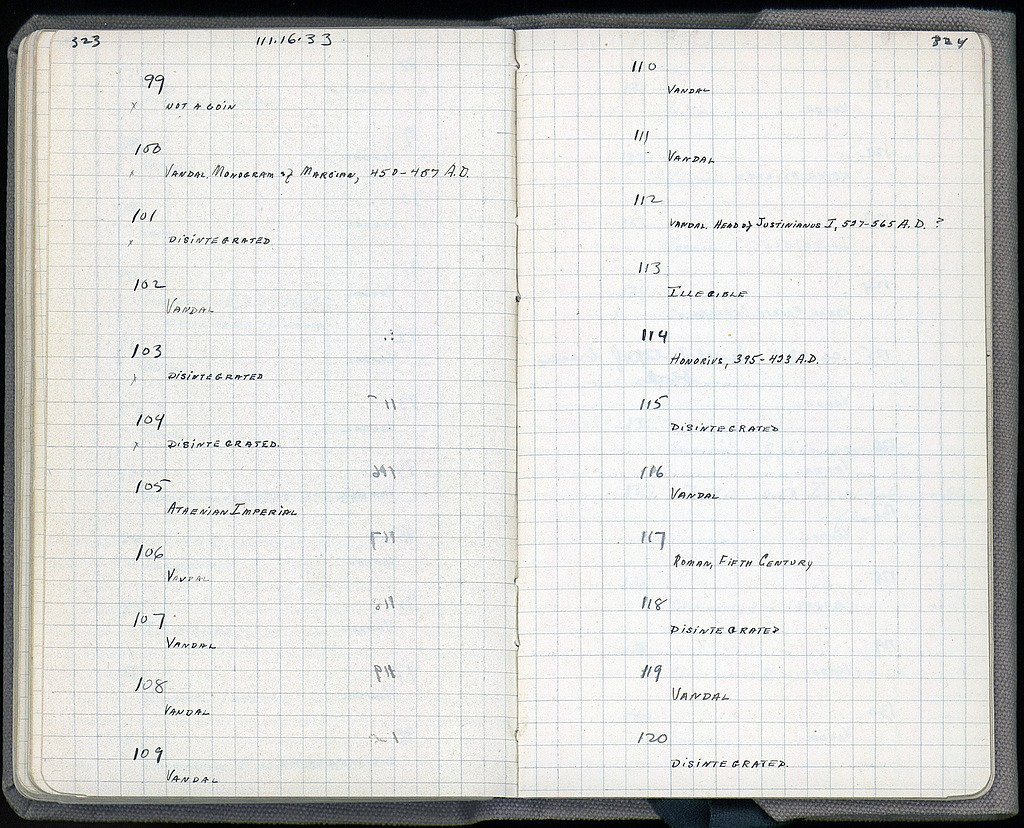 323
111.16.33
99
x NOT A COIN
100
x VANDAL. MONOGRAM of MARCIAN, 450-457 A.D.
101
x DISINTEGRATED
102
VANDAL
103
x DISINTEGRATED
104
x DISINTEGRATED.
105
ATHENIAN IMPERIAL
106
VANDAL
107
VANDAL
108
VANDAL
109
VANDAL
324
110
VANDAL
111
VANDAL
112
VANDAL. HEAD of JUSTINIANUS I, 527-565 A.D. ?
113
ILLEGIBLE
114
HONORIUS, 395-423 A.D.
115
DISINTEGRATED
116
VANDAL
117
ROMAN, FIFTH CENTURY
118
DISINTEGRATED
119
VANDAL
120
DISINTEGRATED.